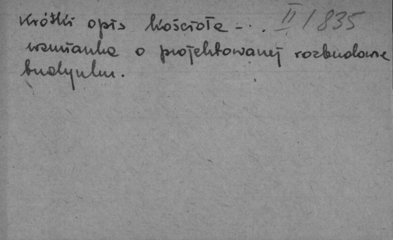 Krótki opis kościoła - . . II/835
wzmianka o projektowanej rozbudowie
budynku.